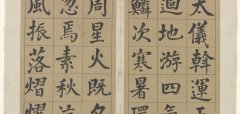 大儀斡運
迴地游四氣
鱗次寒暑環
周星火既夕
忽焉素秋
風振落熠燿